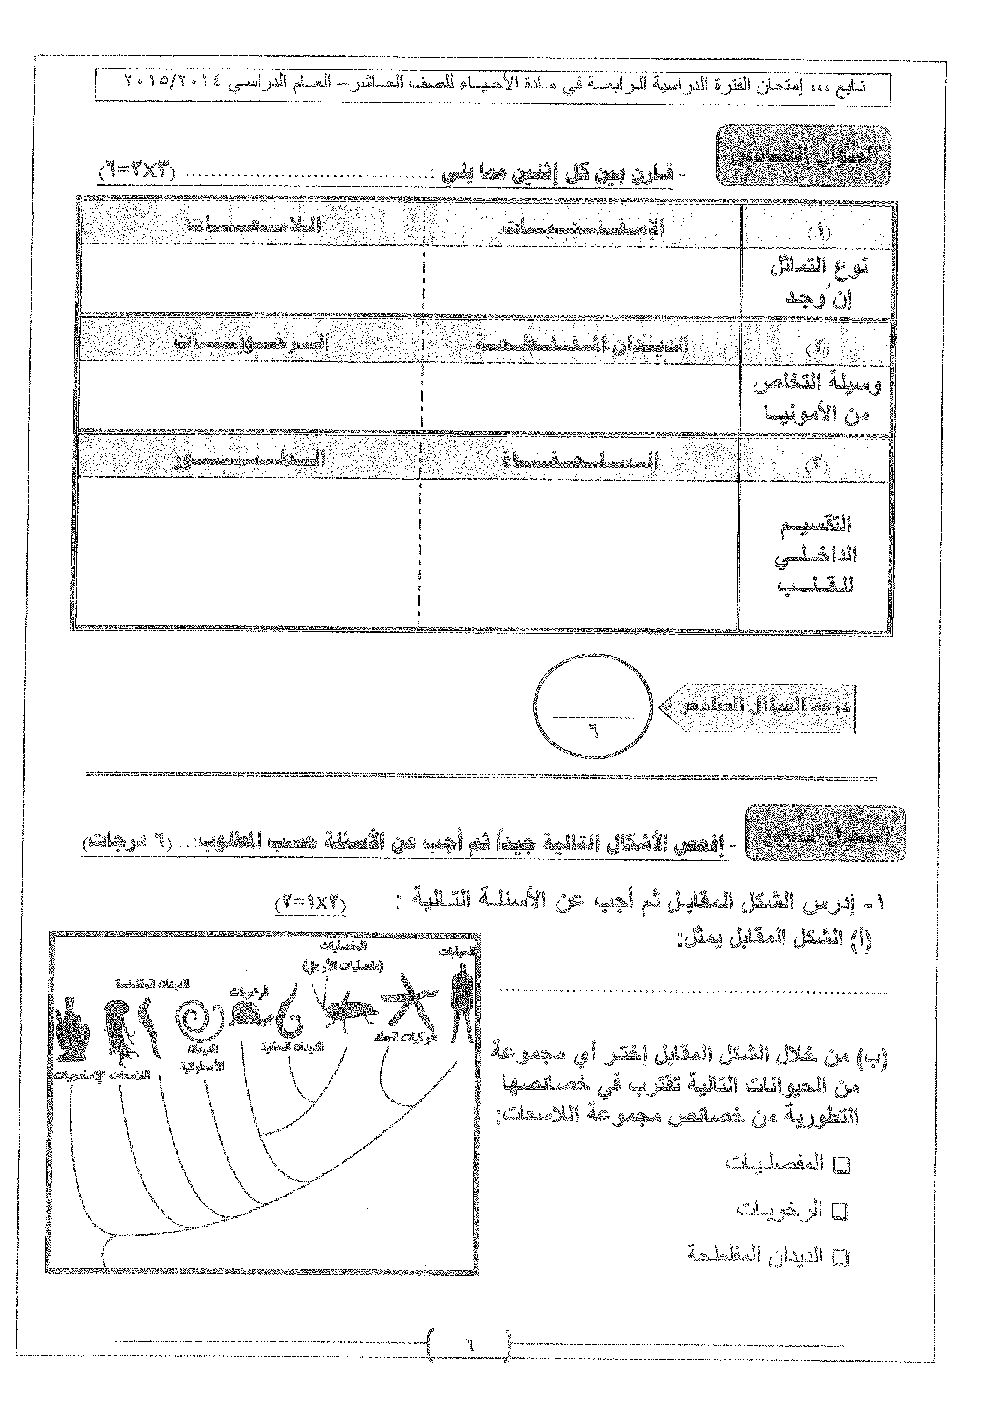 تابع ،،، إمتحان الفترة الدراسية الرابعة في مادة الأحياء للصف العاشر – العام الدراسي ٢٠١٥/٢٠١٤
السؤال السادس
- قارن بين كل إثنين مما يلي : .............................. (٣×٢=٦)
(١) الإسفنجيات اللاسعات
نوع التماثل إن وجد
(٢) الديدان المفلطحة الرخويات
وسيلة التخلص من الأمونيا
(٣) السلحفاة العصفور
التقسيم الداخلي للقلب
درجة السؤال السادس
٦
السؤال السابع
- إفحص الأشكال التالية جيداً ثم أجب عن الأسئلة حسب المطلوب: .. (٦ درجات)
١- إدرس الشكل المقابل ثم أجب عن الأسئلة التالية : (٢×١=٢)
(أ) الشكل المقابل يمثل:
............................................................
(ب) من خلال الشكل المقابل إختر أي مجموعة
من الحيوانات التالية تقترب في خصائصها
التطورية من خصائص مجموعة اللاسعات:
□ المفصليات
□ الرخويات
□ الديدان المفلطحة
الحبليات
المفصليات
(مفصليات الأرجل)
الرخويات
الديدان المفلطحة
شوكيات الجلد
الديدان الحلقية
الديدان
الأسطوانية
اللاسعات
الإسفنجيات
٦